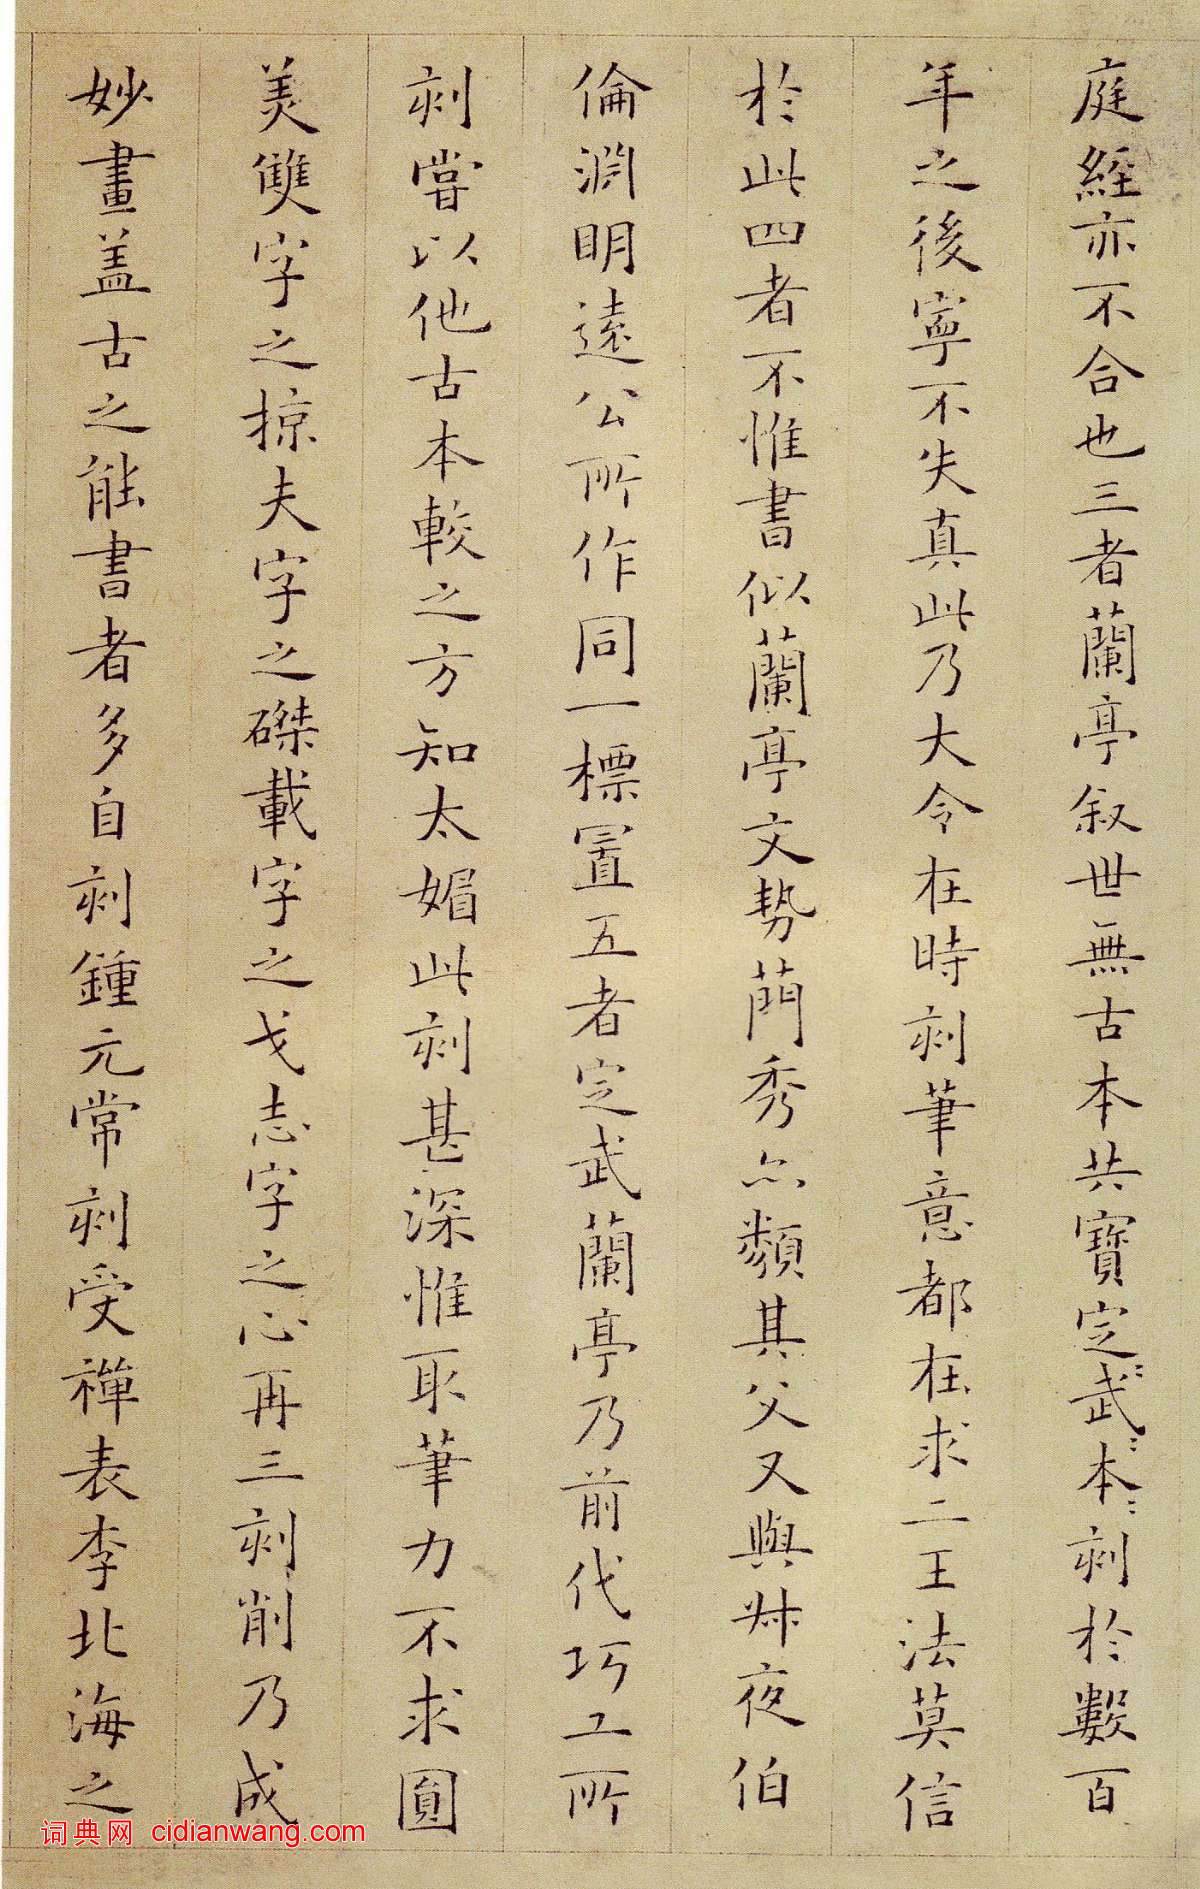 庭經亦不合也三者蘭亭叙世無古本共寶定武本刻於數百
年之後寧不失真此乃大令在時刻筆意都在求二王法莫信
於此四者不惟書似蘭亭文勢蕑秀亦類其父又與叔夜伯
倫淵明遠公所作同一標置五者定武蘭亭乃前代巧工所
刻嘗以他古本較之方知太媚此刻甚深惟取筆力不求圓
美雙字之掠夫字之磔載字之戈志字之心再三刻削乃成
妙畫盖古之能書者多自刻鍾元常刻受禪表李北海之
词典网 cidianwang.com